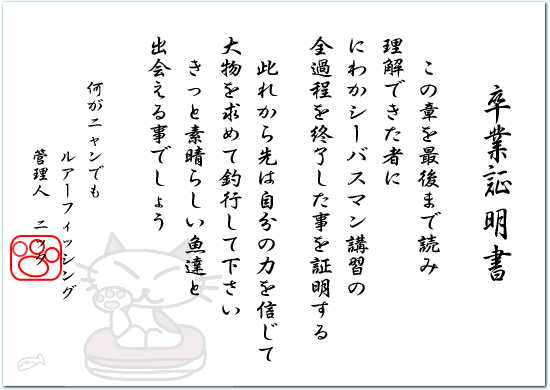 卒業証明書
この章を最後まで読み
理解できた者に
にわかシーバスマン講習の
全過程を終了した事を証明する
此れから先は自分の力を信じて
大物を求めて釣行して下さい
きっと素晴らしい魚達と
出会える事でしょう
何がニャンでも
ルアーフィッシング
管理人